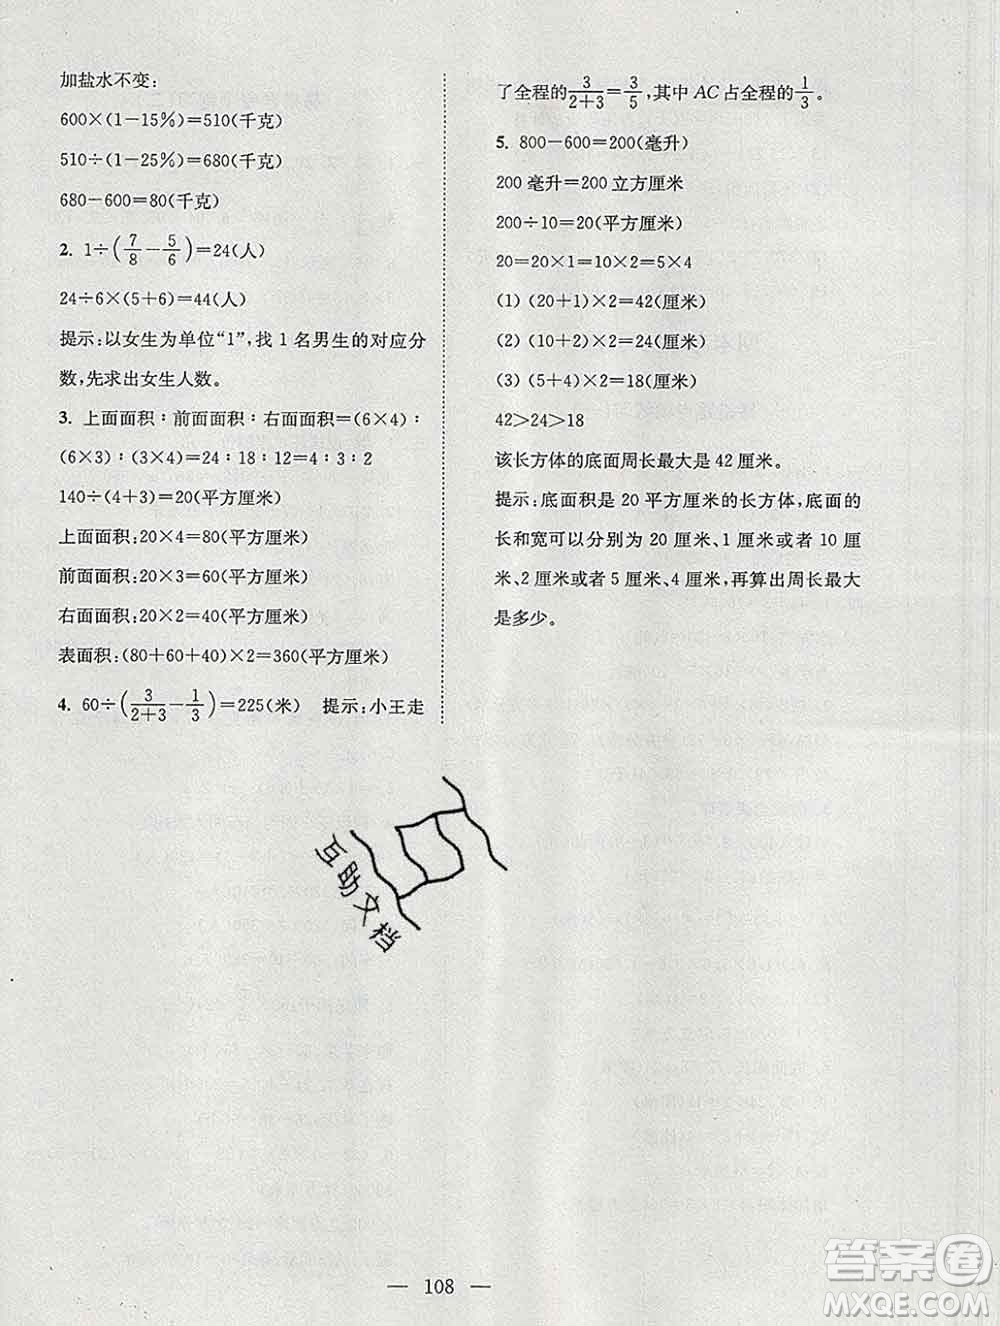 加盐水不变:
600×(1−15%)=510(千克)
510÷(1−25%)=680(千克)
680−600=80(千克)
2. 1÷(7/8−5/6)=24(人)
24÷6×(5+6)=44(人)
提示:以女生为单位“1”,找 1 名男生的对应分
数,先求出女生人数。
3. 上面面积∶前面面积∶右面面积=(6×4)∶
(6×3)∶(3×4)=24∶18∶12=4∶3∶2
140÷(4+3)=20(平方厘米)
上面面积:20×4=80(平方厘米)
前面面积:20×3=60(平方厘米)
右面面积:20×2=40(平方厘米)
表面积:(80+60+40)×2=360(平方厘米)
4. 60÷(3/(2+3)−1/3)=225(米) 提示:小王走
了全程的3/(2+3)=3/5,其中 AC 占全程的1/3。
5. 800−600=200(毫升)
200 毫升=200 立方厘米
200÷10=20(平方厘米)
20=20×1=10×2=5×4
(1) (20+1)×2=42(厘米)
(2) (10+2)×2=24(厘米)
(3) (5+4)×2=18(厘米)
42>24>18
该长方体的底面周长最大是 42 厘米。
提示:底面积是 20 平方厘米的长方体,底面的
长和宽可以分别为 20 厘米、1 厘米或者 10 厘
米、2 厘米或者 5 厘米、4 厘米,再算出周长最大
是多少。
互助文档
— 108 —
答案圈
MXQE.COM